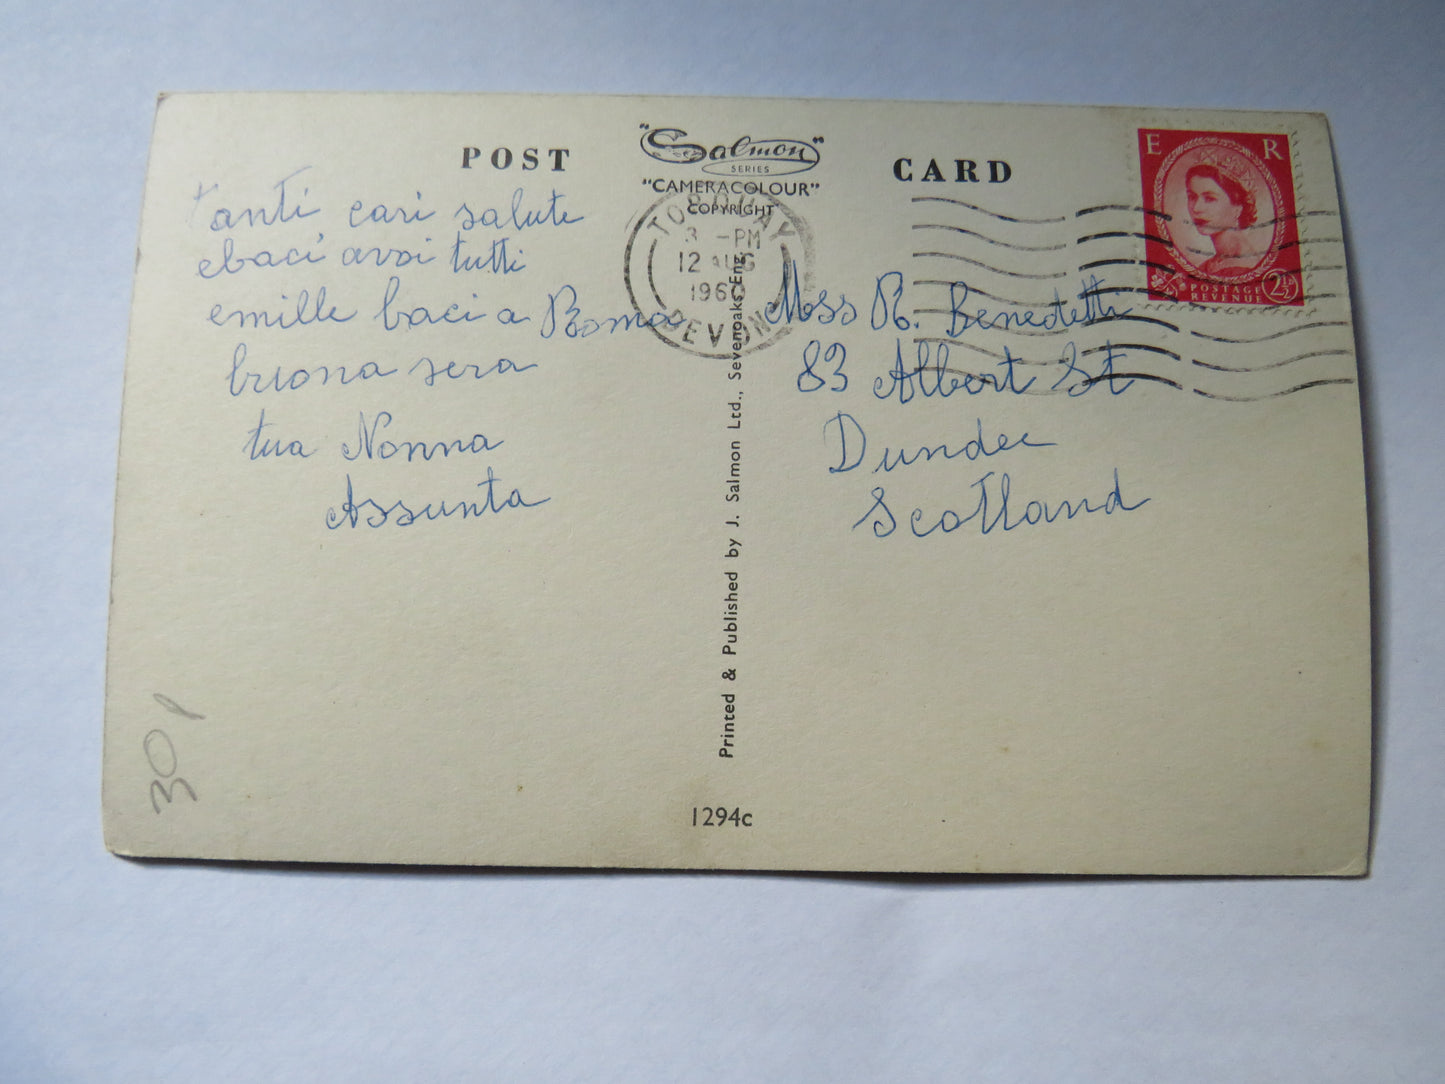 POST CARD
"Salmon"
SERIES
"CAMERACOLOUR"
COPYRIGHT
TORQUAY
3 -PM
12 AUG
1960
DEVON
E R
POSTAGE
REVENUE
2½D
Tanti cari salute
ebaci avoi tutti
emille baci a Roma
buona sera
tua Nonna
Assunta
Miss R. Benedetti
83 Albert St
Dundee
Scotland
Printed & Published by J. Salmon Ltd., Sevenoaks, Eng.
1294c
30p